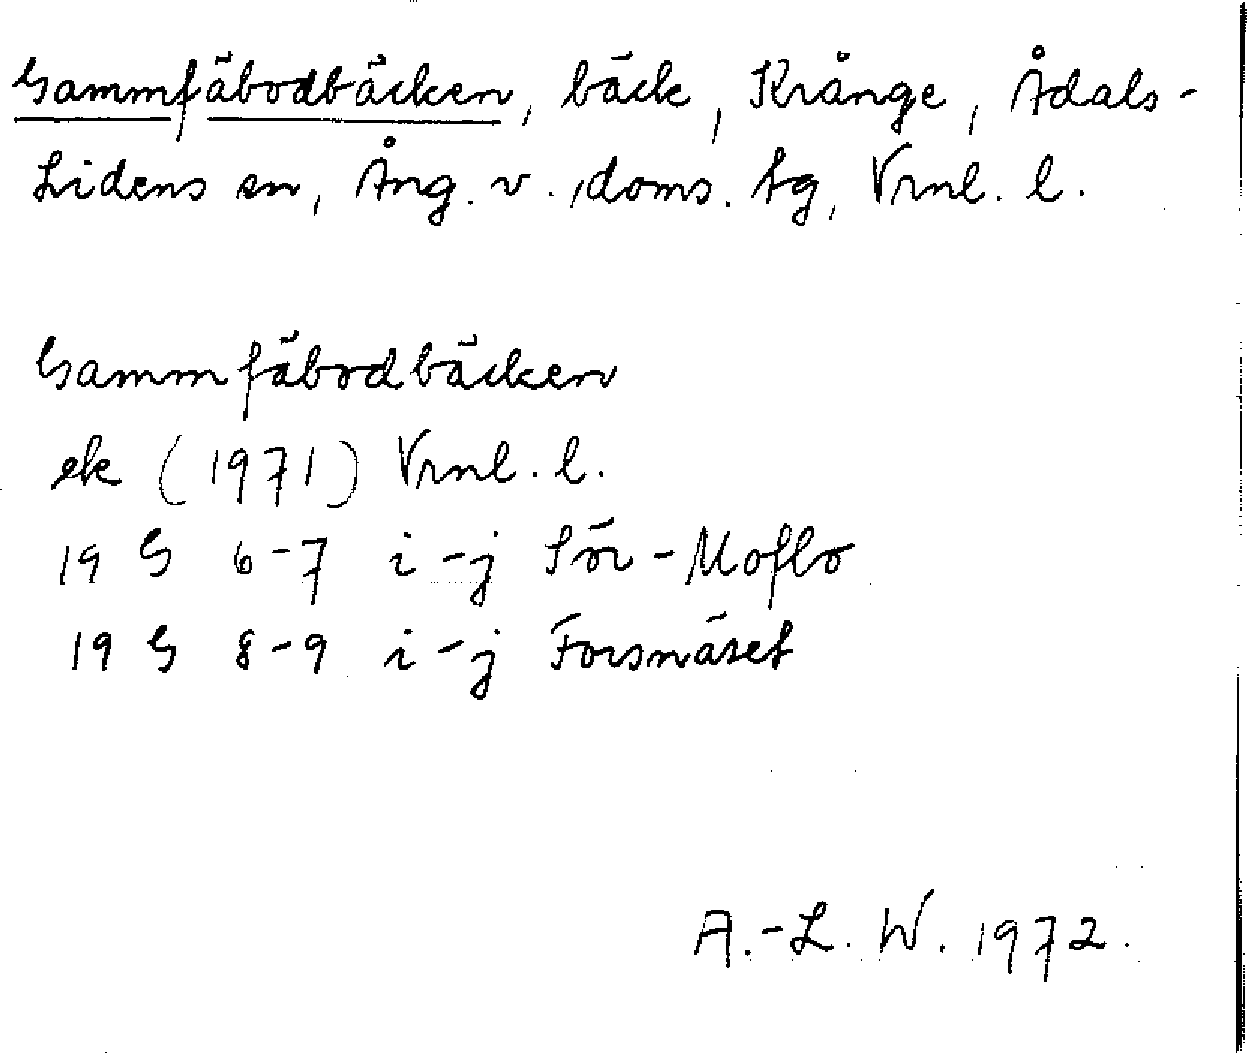 Gammfäbodbäcken, bäck, Krånge, Ådals-
Lidens sn, Ång. v., doms. tg, Vrnl. l.
Gammfäbodbäcken
ek (1971) Vrnl. l.
19 G 6-7 i-j Sör-Moflo
19 G 8-9 i-j Forsnäset
A.-L. W. 1972.